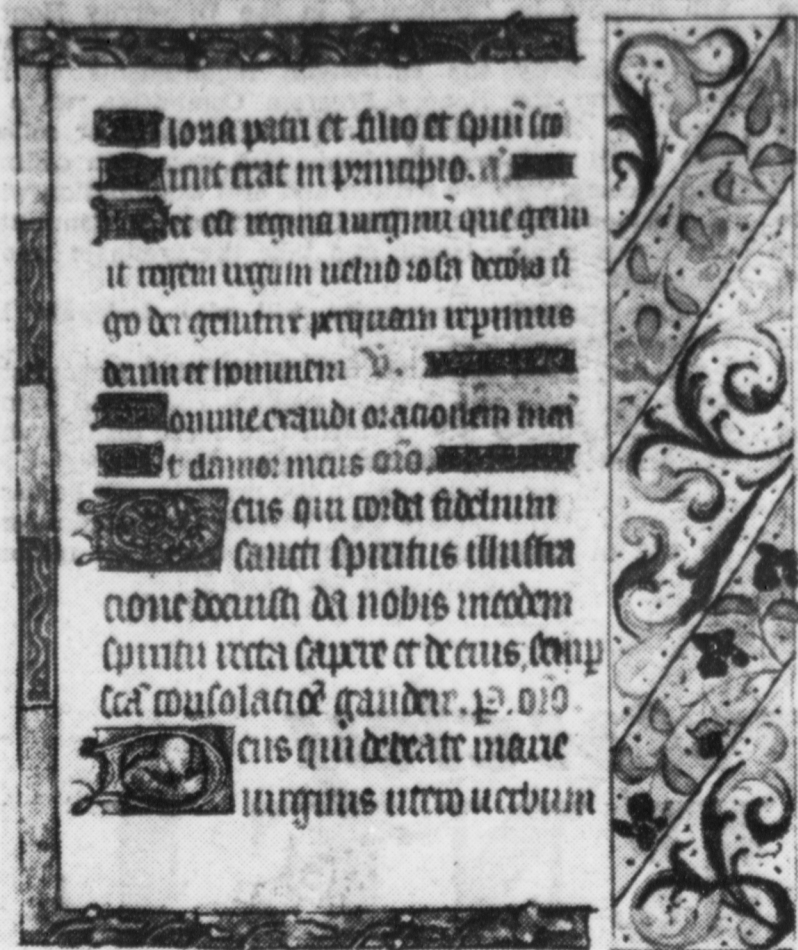 Gloria patri et filio et spiritu̅ sc̅o
Sicut erat in principio. a̅.
Hec est regina uirginu̅ que genu
it regem uirgam uelud rosa decora ui̅
go dei genitrix perquam reperimus
deum et hominem V.
Domine exaudi orationem mea̅
Et clamor meus or̅o.
Deus qui corda fidelium
sancti spiritus illustra
cione docuisti da nobis ineodem
spiritu recta sapere et deeius semp
sc̅a consolacio̅e gaudere. p. or̅o.
Deus qui debeate marie
uirginis utero uerbum